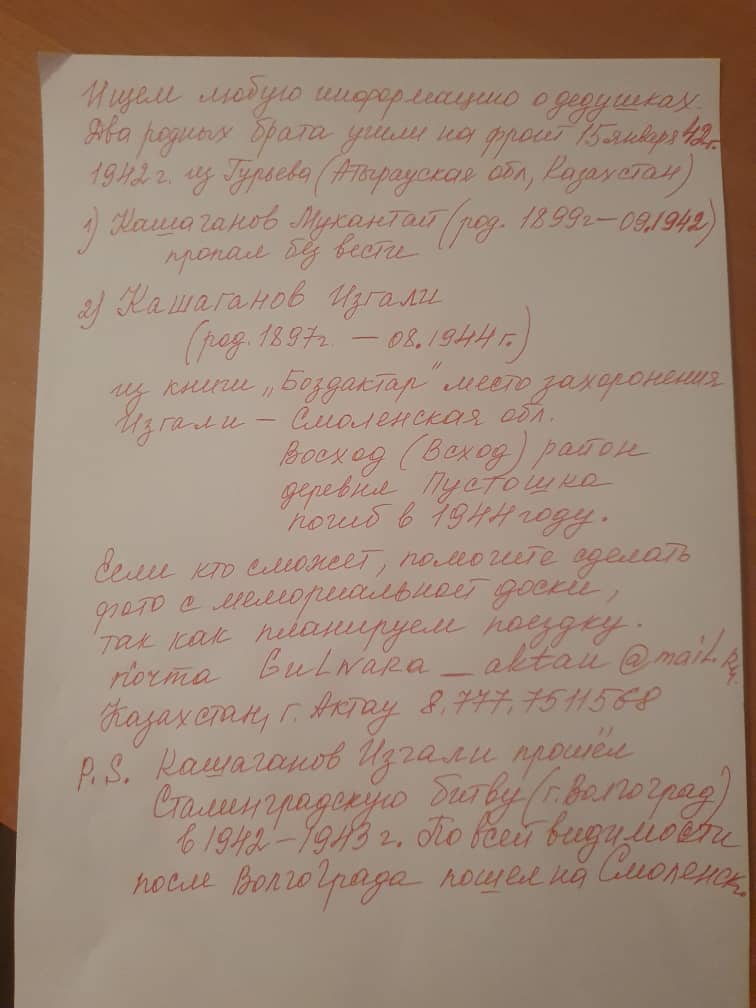 Ищем любую информацию о дедушках.
Два родных брата ушли на фронт 15 января 42г.
1942 г. из Гурьева (Атырауская обл, Казахстан)
1) Кашаганов Мукантай (род. 1899г – 09.1942)
пропал без вести
2) Кашаганов Изгали
(род. 1897г. – 08.1944 г.)
из книги „Боздактар" место захоронения
Изгали – Смоленская обл.
Восход (Всход) район
деревня Пустошка
погиб в 1944 году.
Если кто сможет, помогите сделать
фото с мемориальной доски,
так как планируем поездку.
почта Gulnara_aktau@mail.ru.
Казахстан, г. Актау 8.777.7511568
P.S. Кашаганов Изгали прошёл
Сталинградскую битву (г. Волгоград)
в 1942 – 1943 г. По всей видимости
после Волгограда пошел на Смоленск.